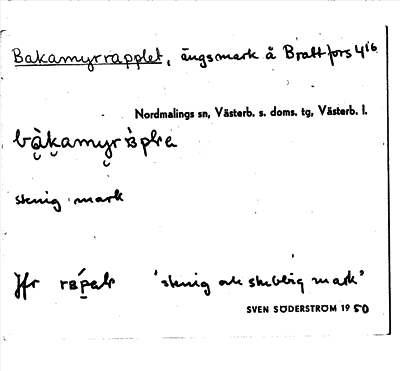 Bakamyrrapplet, ängsmark å Brattfors 4¹⁶
Nordmalings sn, Västerb. s. doms. tg, Västerb. l.
stenig mark
Jfr 'stenig och stubbig mark'
SVEN SÖDERSTRÖM 1950